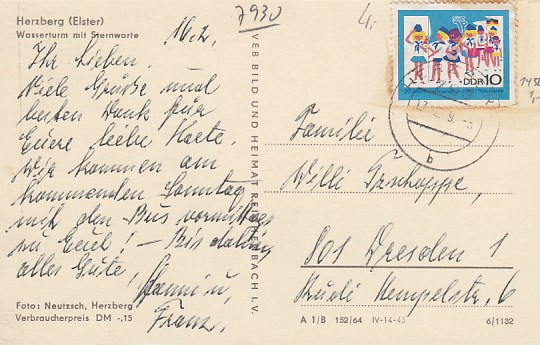 Herzberg (Elster)
Wasserturm mit Sternwarte
7930
16.2.
Ihr Lieben.
Viele Grüße und
besten Dank für
Euere liebe Karte.
Wir kommen am
kommenden Sonntag
mit den Bus vormittags
zu Euch! – Bis dahin
alles Gute,
Hanni u,
Franz.
Foto: Neutzsch, Herzberg
Verbraucherpreis DM -,15
VEB BILD UND HEIMAT REICHENBACH I. V.
DDR 10
Familie
Willi Tzschoppe,
801 Dresden 1
Rudi Hempelstr. 6
A 1/B 152/64 IV-14-45 6/1132